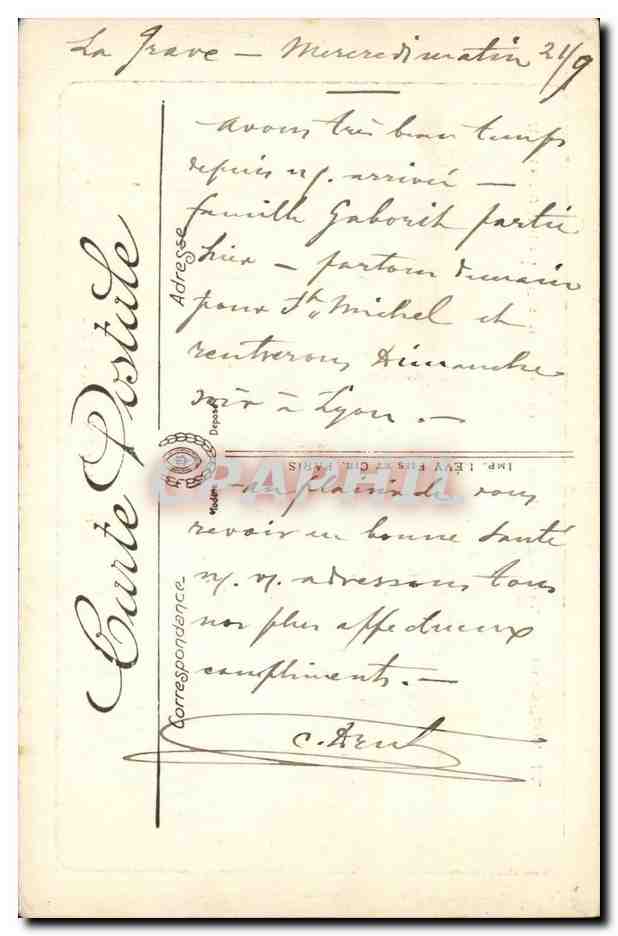 La Grave — Mercredi matin 21/9
avons très beau temps
depuis n/. arrivée —
famille Gaborit partie
hier — partons demain
pour St Michel et
rentrerons Dimanche
soir à Lyon. —
au plaisir de vous
revoir en bonne santé
n/. v/. adressons tous
nos plus affectueux
compliments. —
C.
Carte Postale
Adresse
Correspondance
Modèle Déposé
IMP. LEVY FILS ET CIE, PARIS
CPAPHIL